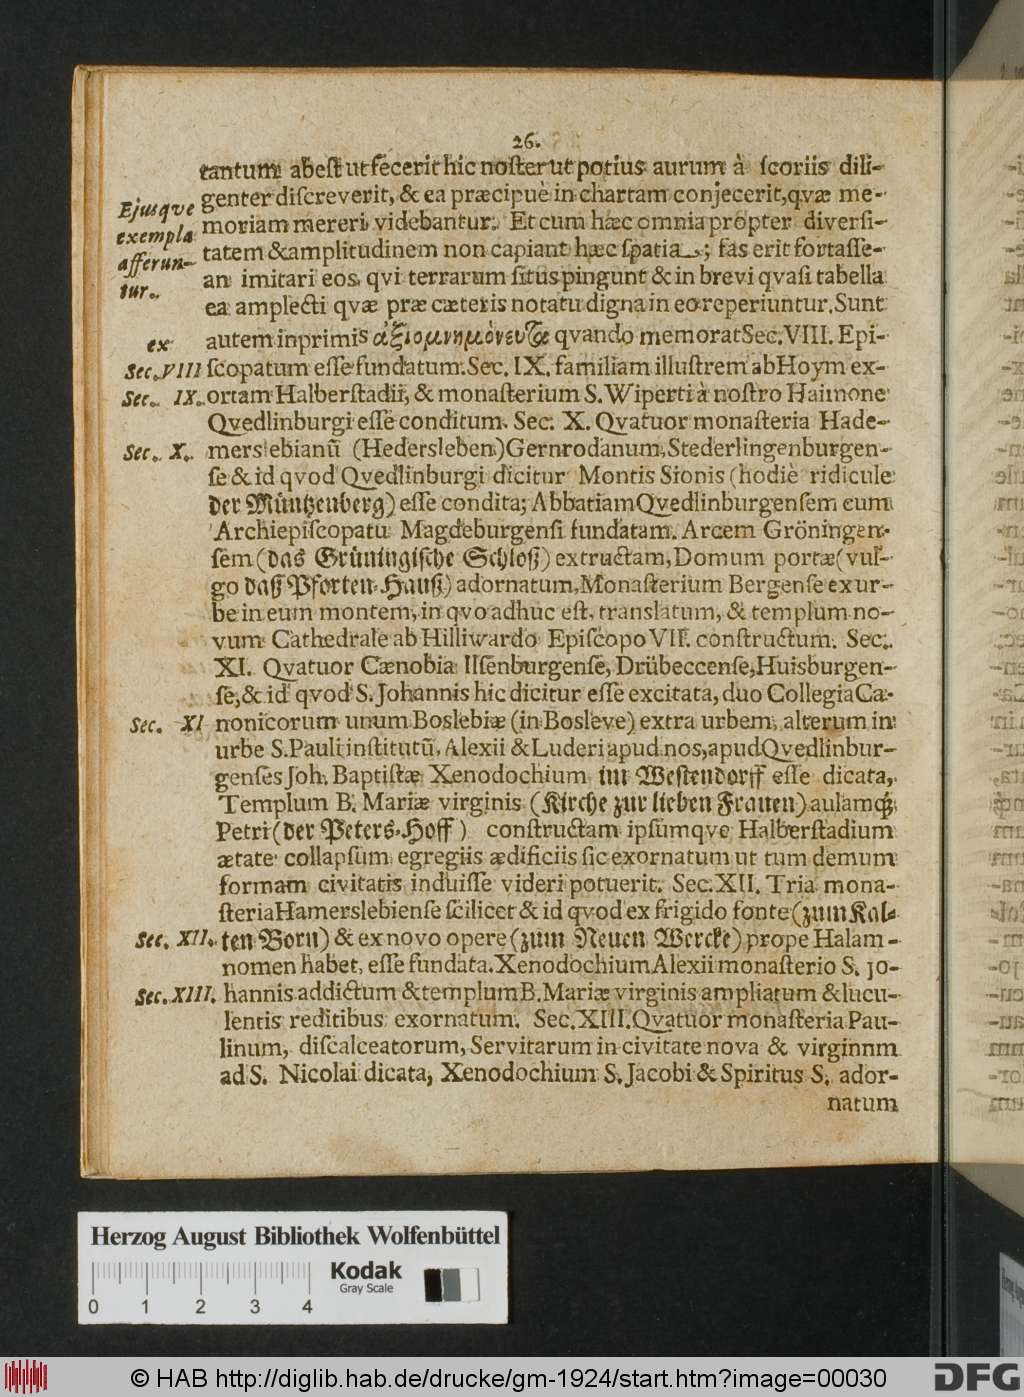 26.
tantum abest ut fecerit hic noster ut potius aurum à scoriis dili-
genter discreverit, & ea præcipuè in chartam conjecerit, qvæ me-
Ejusqve
exempla
afferun-
tur.
moriam mereri videbantur. Et cum hæc omnia propter diversi-
tatem & amplitudinem non capiant hæc spatia; fas erit fortasse-
an imitari eos, qvi terrarum situs pingunt & in brevi qvasi tabella
ea amplecti qvæ præ cæteris notatu digna in eo reperiuntur. Sunt
autem inprimis ἀξιομνημόνευτα qvando memorat Sec. VIII. Epi-
ex
Sec. VIII
scopatum esse fundatum. Sec. IX. familiam illustrem ab Hoym ex-
Sec. IX.
ortam Halberstadii, & monasterium S. Wiperti à nostro Haimone
Qvedlinburgi esse conditum. Sec. X. Qvatuor monasteria Hade-
Sec. X.
merslebianũ (Hedersleben) Gernrodanum, Stederlingenburgen-
se & id qvod Qvedlinburgi dicitur Montis Sionis (hodiè ridicule
der Müntzenberg) esse condita; Abbatiam Qvedlinburgensem cum
Archiepiscopatu Magdeburgensi fundatam. Arcem Gröningen-
sem (das Grüningische Schloß) extructam, Domum portæ (vul-
go daß Pforten-Hauß) adornatum, Monasterium Bergense ex ur-
be in eum montem, in qvo adhuc est, translatum, & templum no-
vum Cathedrale ab Hilliwardo Episcopo VII. constructum. Sec.
XI. Qvatuor Cænobia Ilsenburgense, Drübeccense, Huisburgen-
se, & id qvod S. Johannis hic dicitur esse excitata, duo Collegia Ca-
Sec. XI
nonicorum unum Boslebiæ (in Bosleve) extra urbem, alterum in
urbe S. Pauli institutũ, Alexii & Luderi apud nos, apud Qvedlinbur-
genses Joh. Baptistæ Xenodochium im Westendorff esse dicata,
Templum B. Mariæ virginis (Kirche zur lieben Frauen) aulamq;
Petri (der Peters-Hoff) constructam ipsumqve Halberstadium
ætate collapsum egregiis ædificiis sic exornatum ut tum demum
formam civitatis induisse videri potuerit. Sec. XII. Tria mona-
steria Hamerslebiense scilicet & id qvod ex frigido fonte (zum Kal-
Sec. XII.
ten Born) & ex novo opere (zum Neuen Wercke) prope Halam-
nomen habet, esse fundata. Xenodochium Alexii monasterio S. Jo-
Sec. XIII.
hannis addictum & templum B. Mariæ virginis ampliatum & lucu-
lentis reditibus exornatum. Sec. XIII. Qvatuor monasteria Pau-
linum, discalceatorum, Servitarum in civitate nova & virginnm
ad S. Nicolai dicata, Xenodochium S. Jacobi & Spiritus S. ador-
natum
Herzog August Bibliothek Wolfenbüttel
Kodak
Gray Scale
0 1 2 3 4
© HAB http://diglib.hab.de/drucke/gm-1924/start.htm?image=00030
DFG